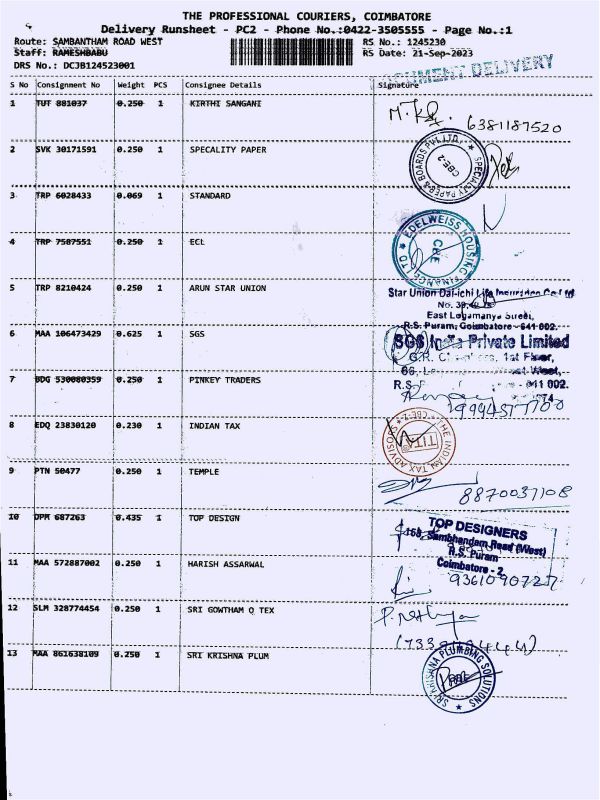 THE PROFESSIONAL COURIERS, COIMBATORE
Delivery Runsheet - PC2 - Phone No.:0422-3505555 - Page No.:1
Route: SAMBANTHAM ROAD WEST RS No.: 1245230
Staff: RAMESHBABU RS Date: 21-Sep-2023
DRS No.: DCJB124523001
DOCUMENT DELIVERY
S No Consignment No Weight PCS Consignee Details Signature
1 TUT 881037 0.250 1 KIRTHI SANGANI
6381187520
2 SVK 30171591 0.250 1 SPECALITY PAPER
SPECIALITY PAPER & BOARDS PVT LTD. CBE-2
3 TRP 6028433 0.069 1 STANDARD
4 TRP 7587551 0.250 1 ECL
EDELWEISS HOUSING FINANCE LTD CBE
5 TRP 8210424 0.250 1 ARUN STAR UNION
Star Union Dai-ichi Life Insurance Co Ltd
East Logamanya Street,
R.S. Puram, Coimbatore - 641 002.
6 MAA 106473429 0.625 1 SGS
SGS India Private Limited
1st Floor,
West,
7 BDG 530080359 0.250 1 PINKEY TRADERS
R.S. 002.
8 EDQ 23830120 0.230 1 INDIAN TAX
THE INDIAN TAX ADVISORS CBE-2
TIT
9 PTN 50477 0.250 1 TEMPLE
8870037108
10 DPM 687263 0.435 1 TOP DESIGN
TOP DESIGNERS
Sambhandam Road (West)
R.S. Puram
Coimbatore - 2.
11 MAA 572887002 0.250 1 HARISH ASSARWAL
9361090727
12 SLM 328774454 0.250 1 SRI GOWTHAM O TEX
13 MAA 861638109 0.250 1 SRI KRISHNA PLUM
SRI KRISHNA PLUMBING SOLUTIONS